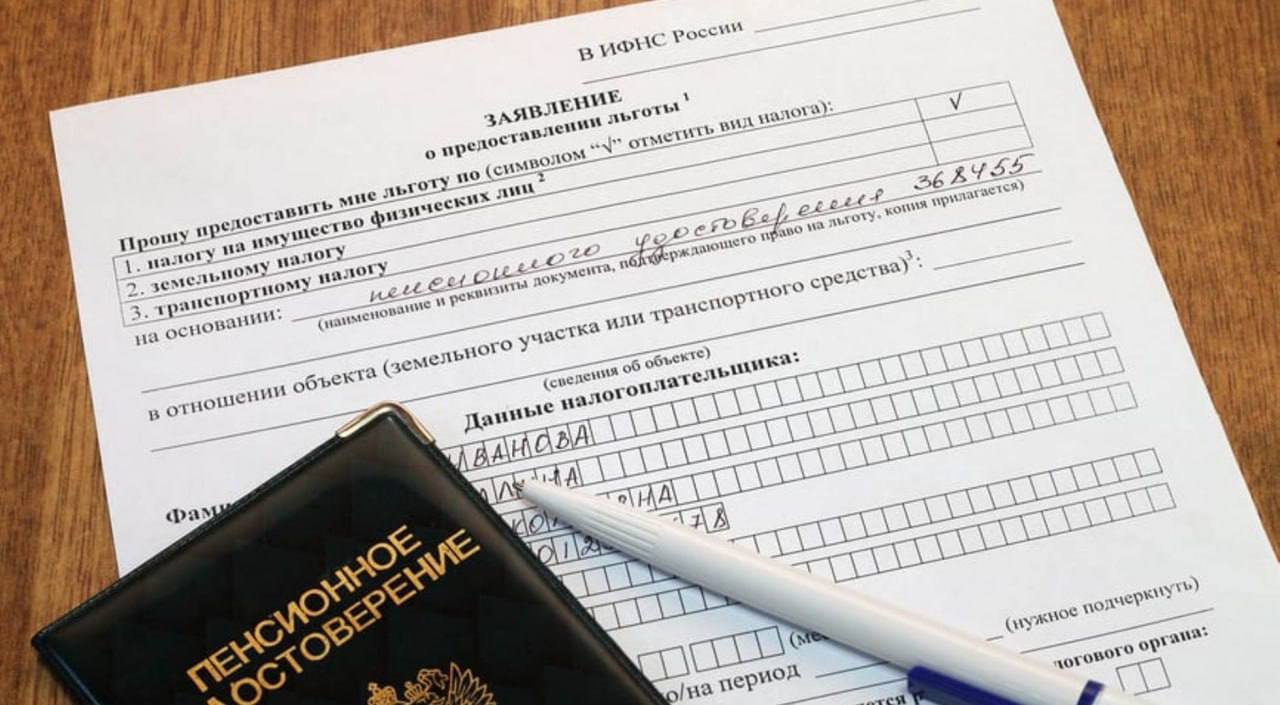 В ИФНС России
ЗАЯВЛЕНИЕ
о предоставлении льготы 1
Прошу предоставить мне льготу по (символом “√” отметить вид налога):
1. налогу на имущество физических лиц 2 √
2. земельному налогу
3. транспортному налогу
на основании: пенсионного удостоверения 368455
(наименование и реквизиты документа, подтверждающего право на льготу, копия прилагается)
в отношении объекта (земельного участка или транспортного средства)3:
(сведения об объекте)
Данные налогоплательщика:
ИВАНОВА
Фами
(нужное подчеркнуть)
о/на период
логового органа:
ПЕНСИОННОЕ
ДОСТОВЕРЕНИЕ